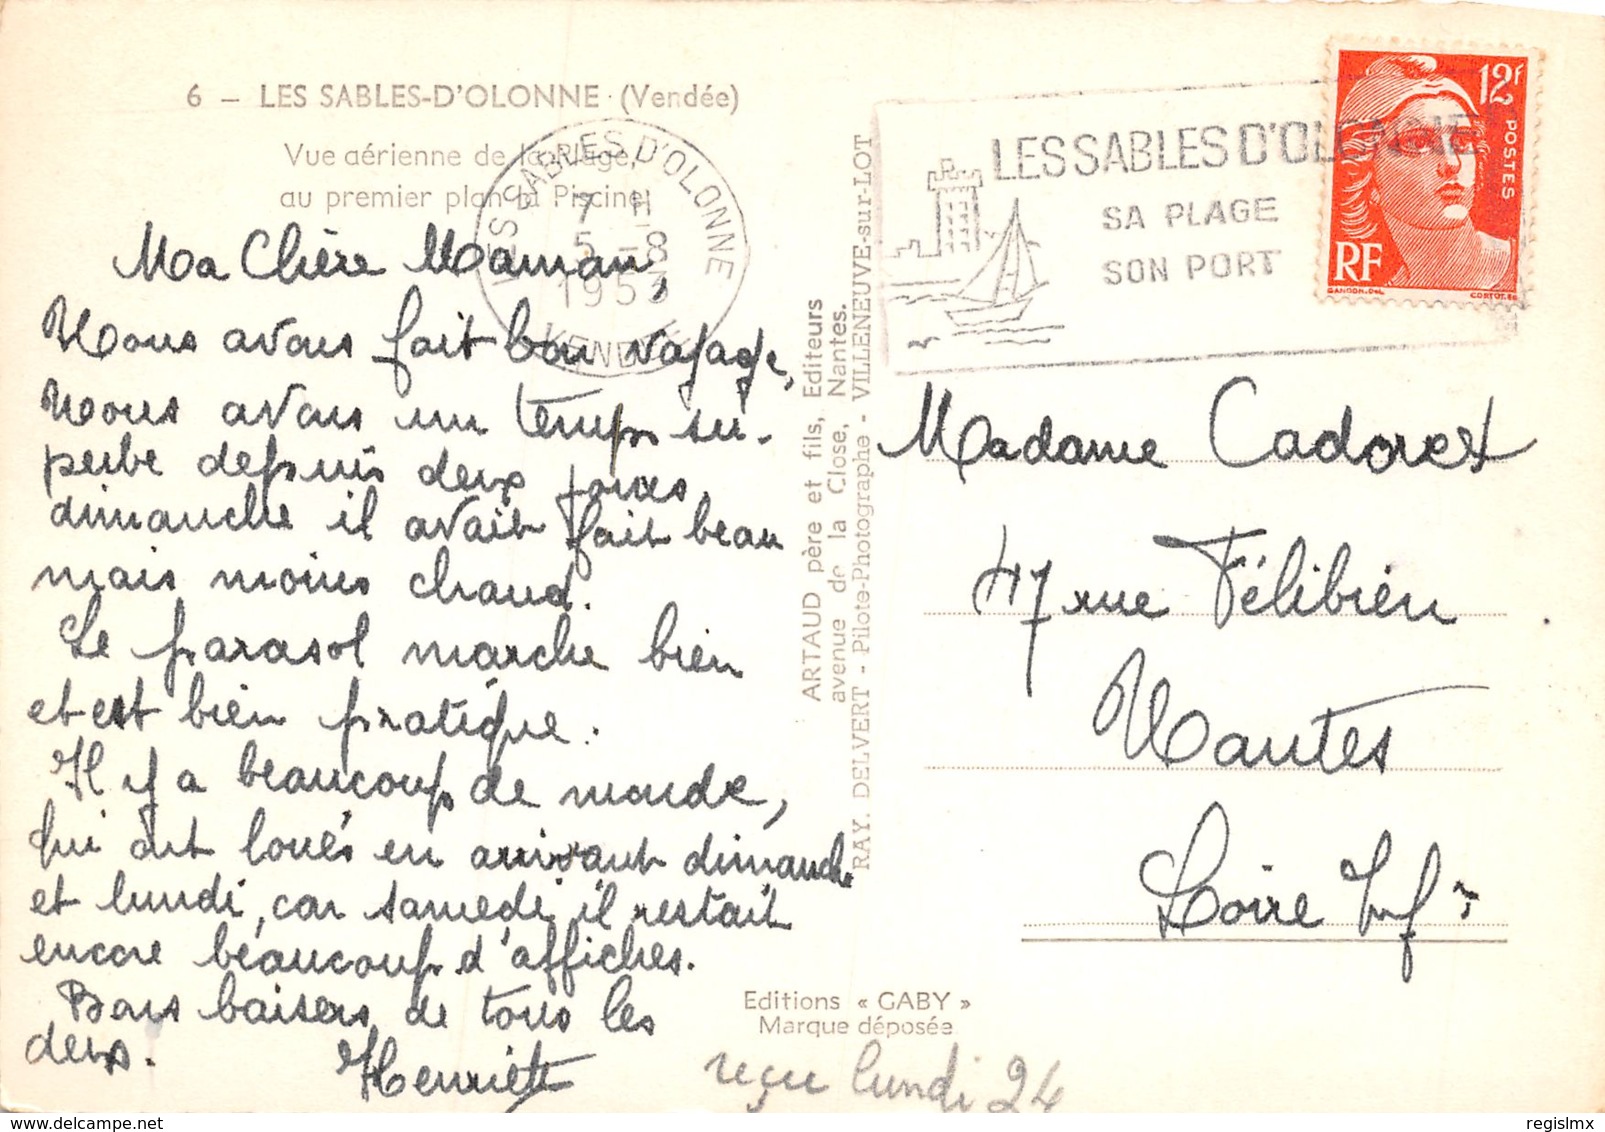 6 – LES SABLES-D'OLONNE (Vendée)
Vue aérienne de la Plage,
au premier plan la Piscine
LES SABLES D'OLONNE
7 H
5 -8
1953
VENDÉE
Ma Chère Maman,
Nous avons fait bon voyage,
Nous avons un temps su-
perbe depuis deux jours,
dimanche il avait fait beau
mais moins chaud.
Le parasol marche bien
et est bien pratique.
Il y a beaucoup de monde,
qui ont loués en arrivant dimanche
et lundi, car samedi il restait
encore beaucoup d'affiches.
Bons baisers de tous les
deux.
Henriette
ARTAUD père et fils, Editeurs
avenue de la Close, Nantes.
RAY. DELVERT - Pilote-Photographe - VILLENEUVE-sur-LOT
Editions « GABY »
Marque déposée
LES SABLES D'OLONNE
SA PLAGE
SON PORT
12F
POSTES
RF
GANDON.DEL
CORTOT.SC
Madame Cadoret
47 rue Félibien
Nantes
Loire Infre
reçu lundi 24
regislmx